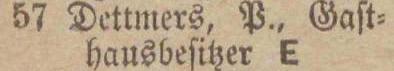 57 Dettmers, P., Gaſt⸗
hausbeſitzer E